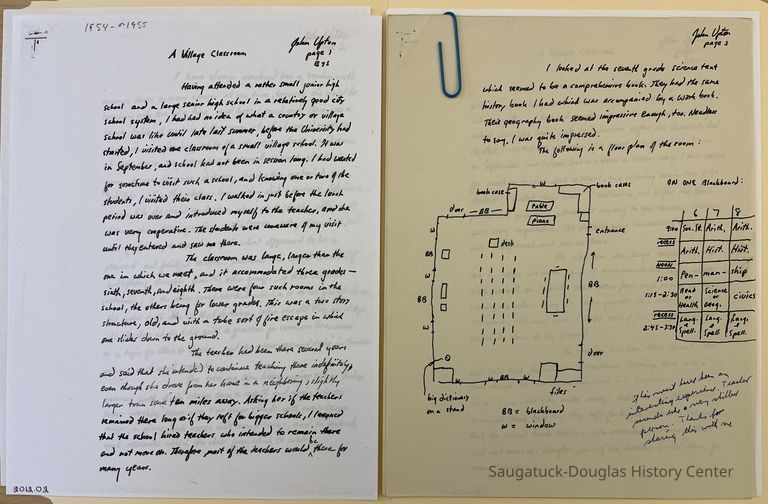 1954 - 1955
John Upton
page 1
A Village Classroom
Having attended a rather small junior high
school and a large senior high school in a relatively good city
school system, I had had no idea of what a country or village
school was like until late last summer, before the University had
started, I visited one classroom of a small village school. It was
in September, and school had not been in session long. I had wanted
for sometime to visit such a school, and knowing one or two of the
students, I visited their class. I walked in just before the lunch
period was over and introduced myself to the teacher, and she
was very cooperative. The students were unaware of my visit
until they entered and saw me there.
The classroom was large, larger than the
one in which we meet, and it accommodated three grades—
sixth, seventh, and eighth. There were four such rooms in the
school, the others being for lower grades. This was a two story
structure, old, and with a tube sort of fire escape in which
one slides down to the ground.
The teacher had been there several years
and said that she intended to continue teaching there indefinitely,
even though she drove from her home in a neighboring, slightly
larger town some ten miles away. Asking her if the teachers
remained there long or if they left for bigger schools, I learned
that the school hired teachers who intended to remain there
and not move on. Therefore, most of the teachers would be there for
many years.
2012.02
John Upton
page 3
I looked at the seventh grade science text
which seemed to be a comprehensive book. They had the same
history book I had which was accompanied by a work book.
Their geography book seemed impressive enough, too. Needless
to say, I was quite impressed.
The following is a floor plan of the room:
book case
W
book cases
door
BB
table
piano
entrance
W
BB
desk
W
BB
BB
W
door
W
BB
W
files
big dictionary
on a stand
BB = blackboard
W = window
ON ONE Blackboard:
6 7 8
9:00 Soc. St. Arith. Arith.
recess
Arith. Hist. Hist.
noon
1:00 Pen- man- ship
1:15-2:30 Read or Health Science or Geog. Civics
recess
2:45-3:30 Lang. + Spell. Lang. + Spell. Lang. + Spell.
This must have been an
interesting experience. Teacher
sounds like a very skilled
person. Thanks for
sharing this with me.
Saugatuck-Douglas History Center